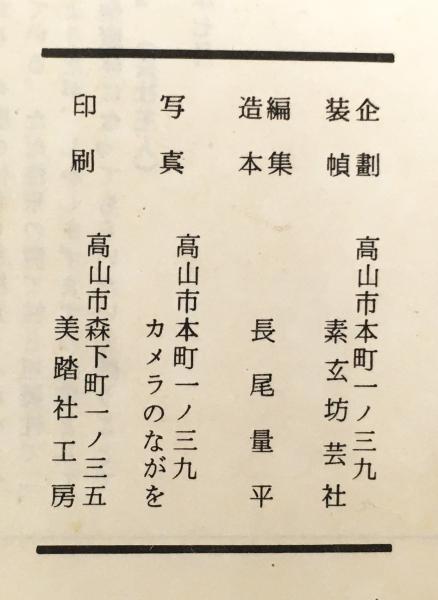 企劃
装幀
高山市本町一ノ三九
素玄坊芸社
編集
造本
長尾量平
写真
高山市本町一ノ三九
カメラのながを
印刷
高山市森下町一ノ三五
美踏社工房